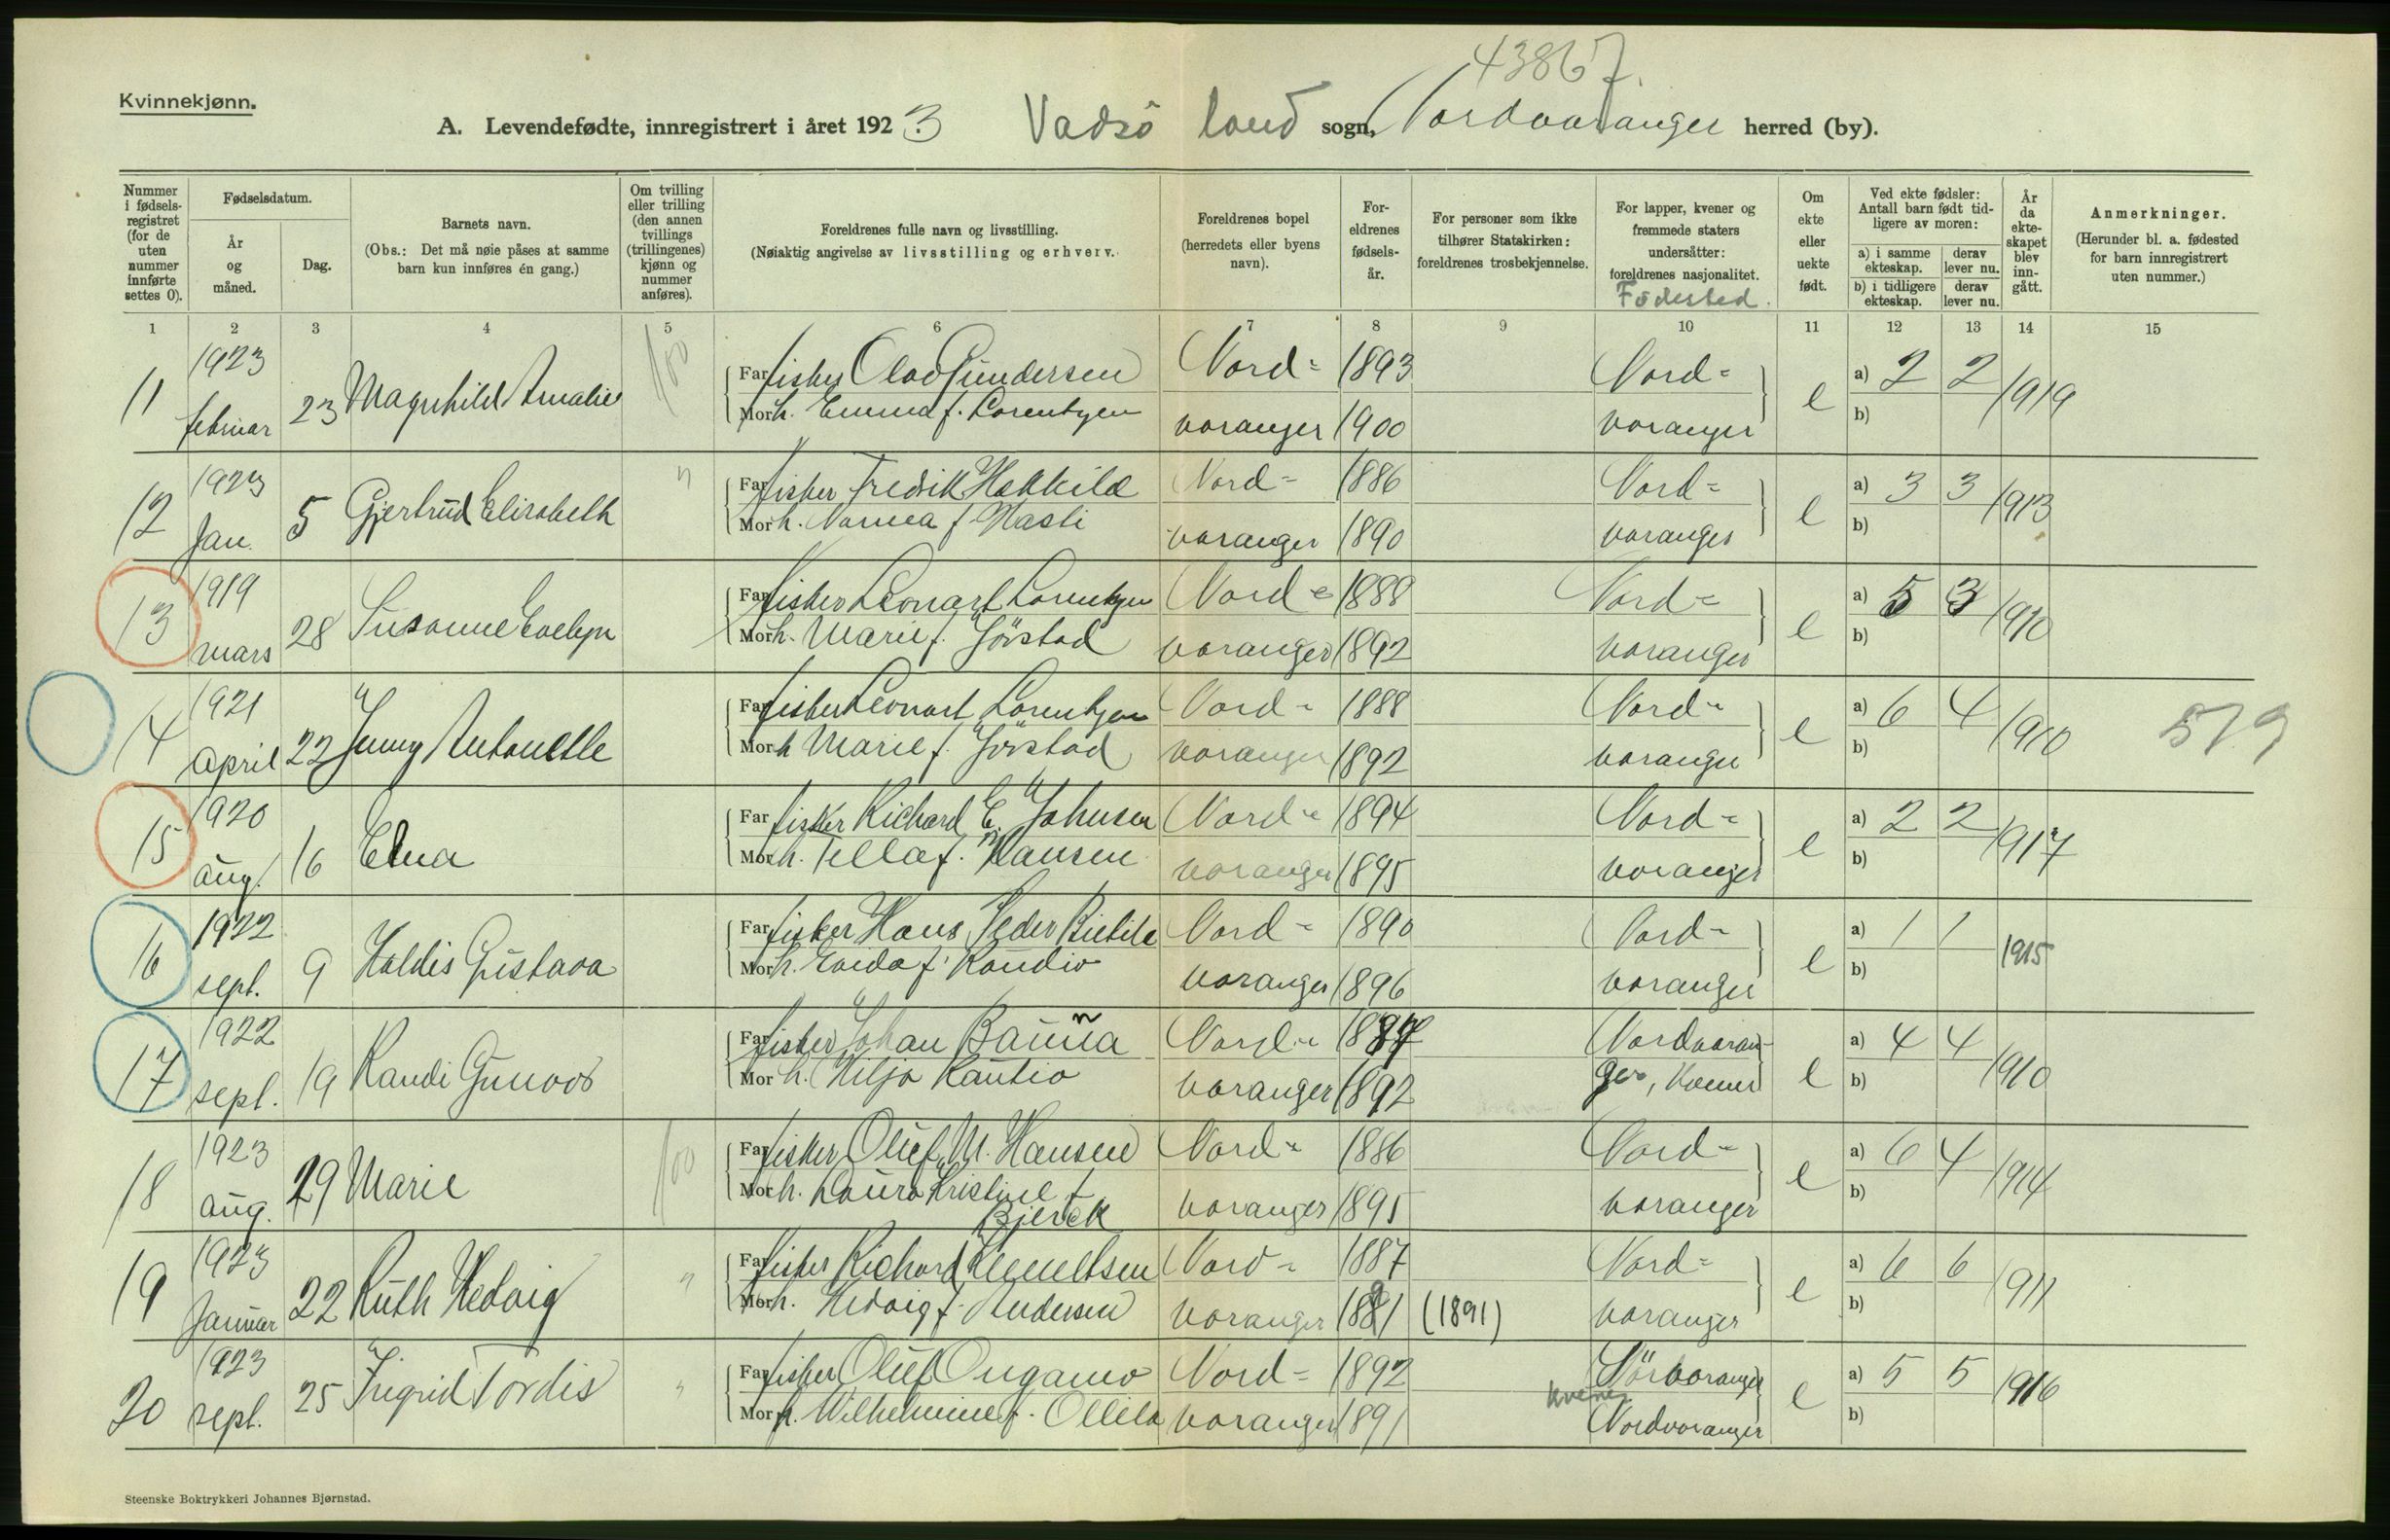 43867.
Kvinnekjønn.
A. Levendefødte, innregistrert i året 1923. Vadsö land sogn, Nordvaranger herred (by).
Nummer i fødselsregistret (for de uten nummer innførte settes 0).
Fødselsdatum.
År og måned.
Dag.
Barnets navn.
(Obs.: Det må nøie påses at samme barn kun innføres én gang.)
Om tvilling eller trilling (den annen tvillings (trillingenes) kjønn og nummer anføres).
Foreldrenes fulle navn og livsstilling.
(Nøiaktig angivelse av livsstilling og erhverv.
Foreldrenes bopel (herredets eller byens navn).
Foreldrenes fødselsår.
For personer som ikke tilhører Statskirken: foreldrenes trosbekjennelse.
For lapper, kvener og fremmede staters undersåtter: foreldrenes nasjonalitet.
Födested.
Om ekte eller uekte født.
Ved ekte fødsler: Antall barn født tidligere av moren:
a) i samme ekteskap.
derav lever nu.
b) i tidligere ekteskap.
derav lever nu.
År da ekteskapet blev inngått.
Anmerkninger.
(Herunder bl. a. fødested for barn innregistrert uten nummer.)
1 2 3 4 5 6 7 8 9 10 11 12 13 14 15
11 1923 februar 23 Magnhild Amalie 100 Far fisker Olav Gundersen Nord= 1893 Nord= e a) 2 2 1919
Mor h. Emma f. Lorentzen varanger 1900 varanger b)
12 1923 Jan. 5 Gjertrud Elisabeth " Far fisker Fredrik Hakkila Nord= 1886 Nord= e a) 3 3 1913
Mor h. Namea f. Hasti varanger 1890 varanger b)
13 1919 mars 28 Susanne Evelyn Far fisker Leonart Lorentzen Nord= 1888 Nord= e a) 5 3 1910
Mor h. Marie f. Jörstad varanger 1892 varanger b)
14 1921 april 22 Jenny Antonette Far fisker Leonart Lorentzen Nord= 1888 Nord= e a) 6 4 1910 579
Mor h Marie f. Jörstad varanger 1892 varanger b)
15 1920 aug. 16 Elna Far fisker Richard E. Johnsen Nord= 1894 Nord= e a) 2 2 1917
Mor h. Tella f. Hansen varanger 1895 varanger b)
16 1922 sept. 9 Haldis Gustava Far fisker Hans Peder Bietila Nord= 1890 Nord= e a) 1 1 1915
Mor h. Evida f. Randio varanger 1896 varanger b)
17 1922 sept. 19 Randi Gunvor Far fisker Johan Banna Nord= 1887 Nordvaran- e a) 4 4 1910
Mor h. Hilja Rautio varanger 1892 ger, kvener b)
18 1923 aug. 29 Marie 100 Far fisker Oluf M. Hansen Nord= 1886 Nord= e a) 6 4 1914
Mor h. Laura Kristine f. Bjerck varanger 1895 varanger b)
19 1923 Januar 22 Ruth Hedvig " Far fisker Richard Klemetsen Nord= 1887 Nord= e a) 6 6 1911
Mor h. Hedvig f. Andersen varanger 1891 (1891) varanger b)
20 1923 sept. 25 Ingrid Tordis " Far fisker Oluf Ongamo Nord= 1892 Sörvaranger e a) 5 5 1916
Mor h. Wilhelmine f. Ollila varanger 1891 kvener Nordvaranger b)
Steenske Boktrykkeri Johannes Bjørnstad.